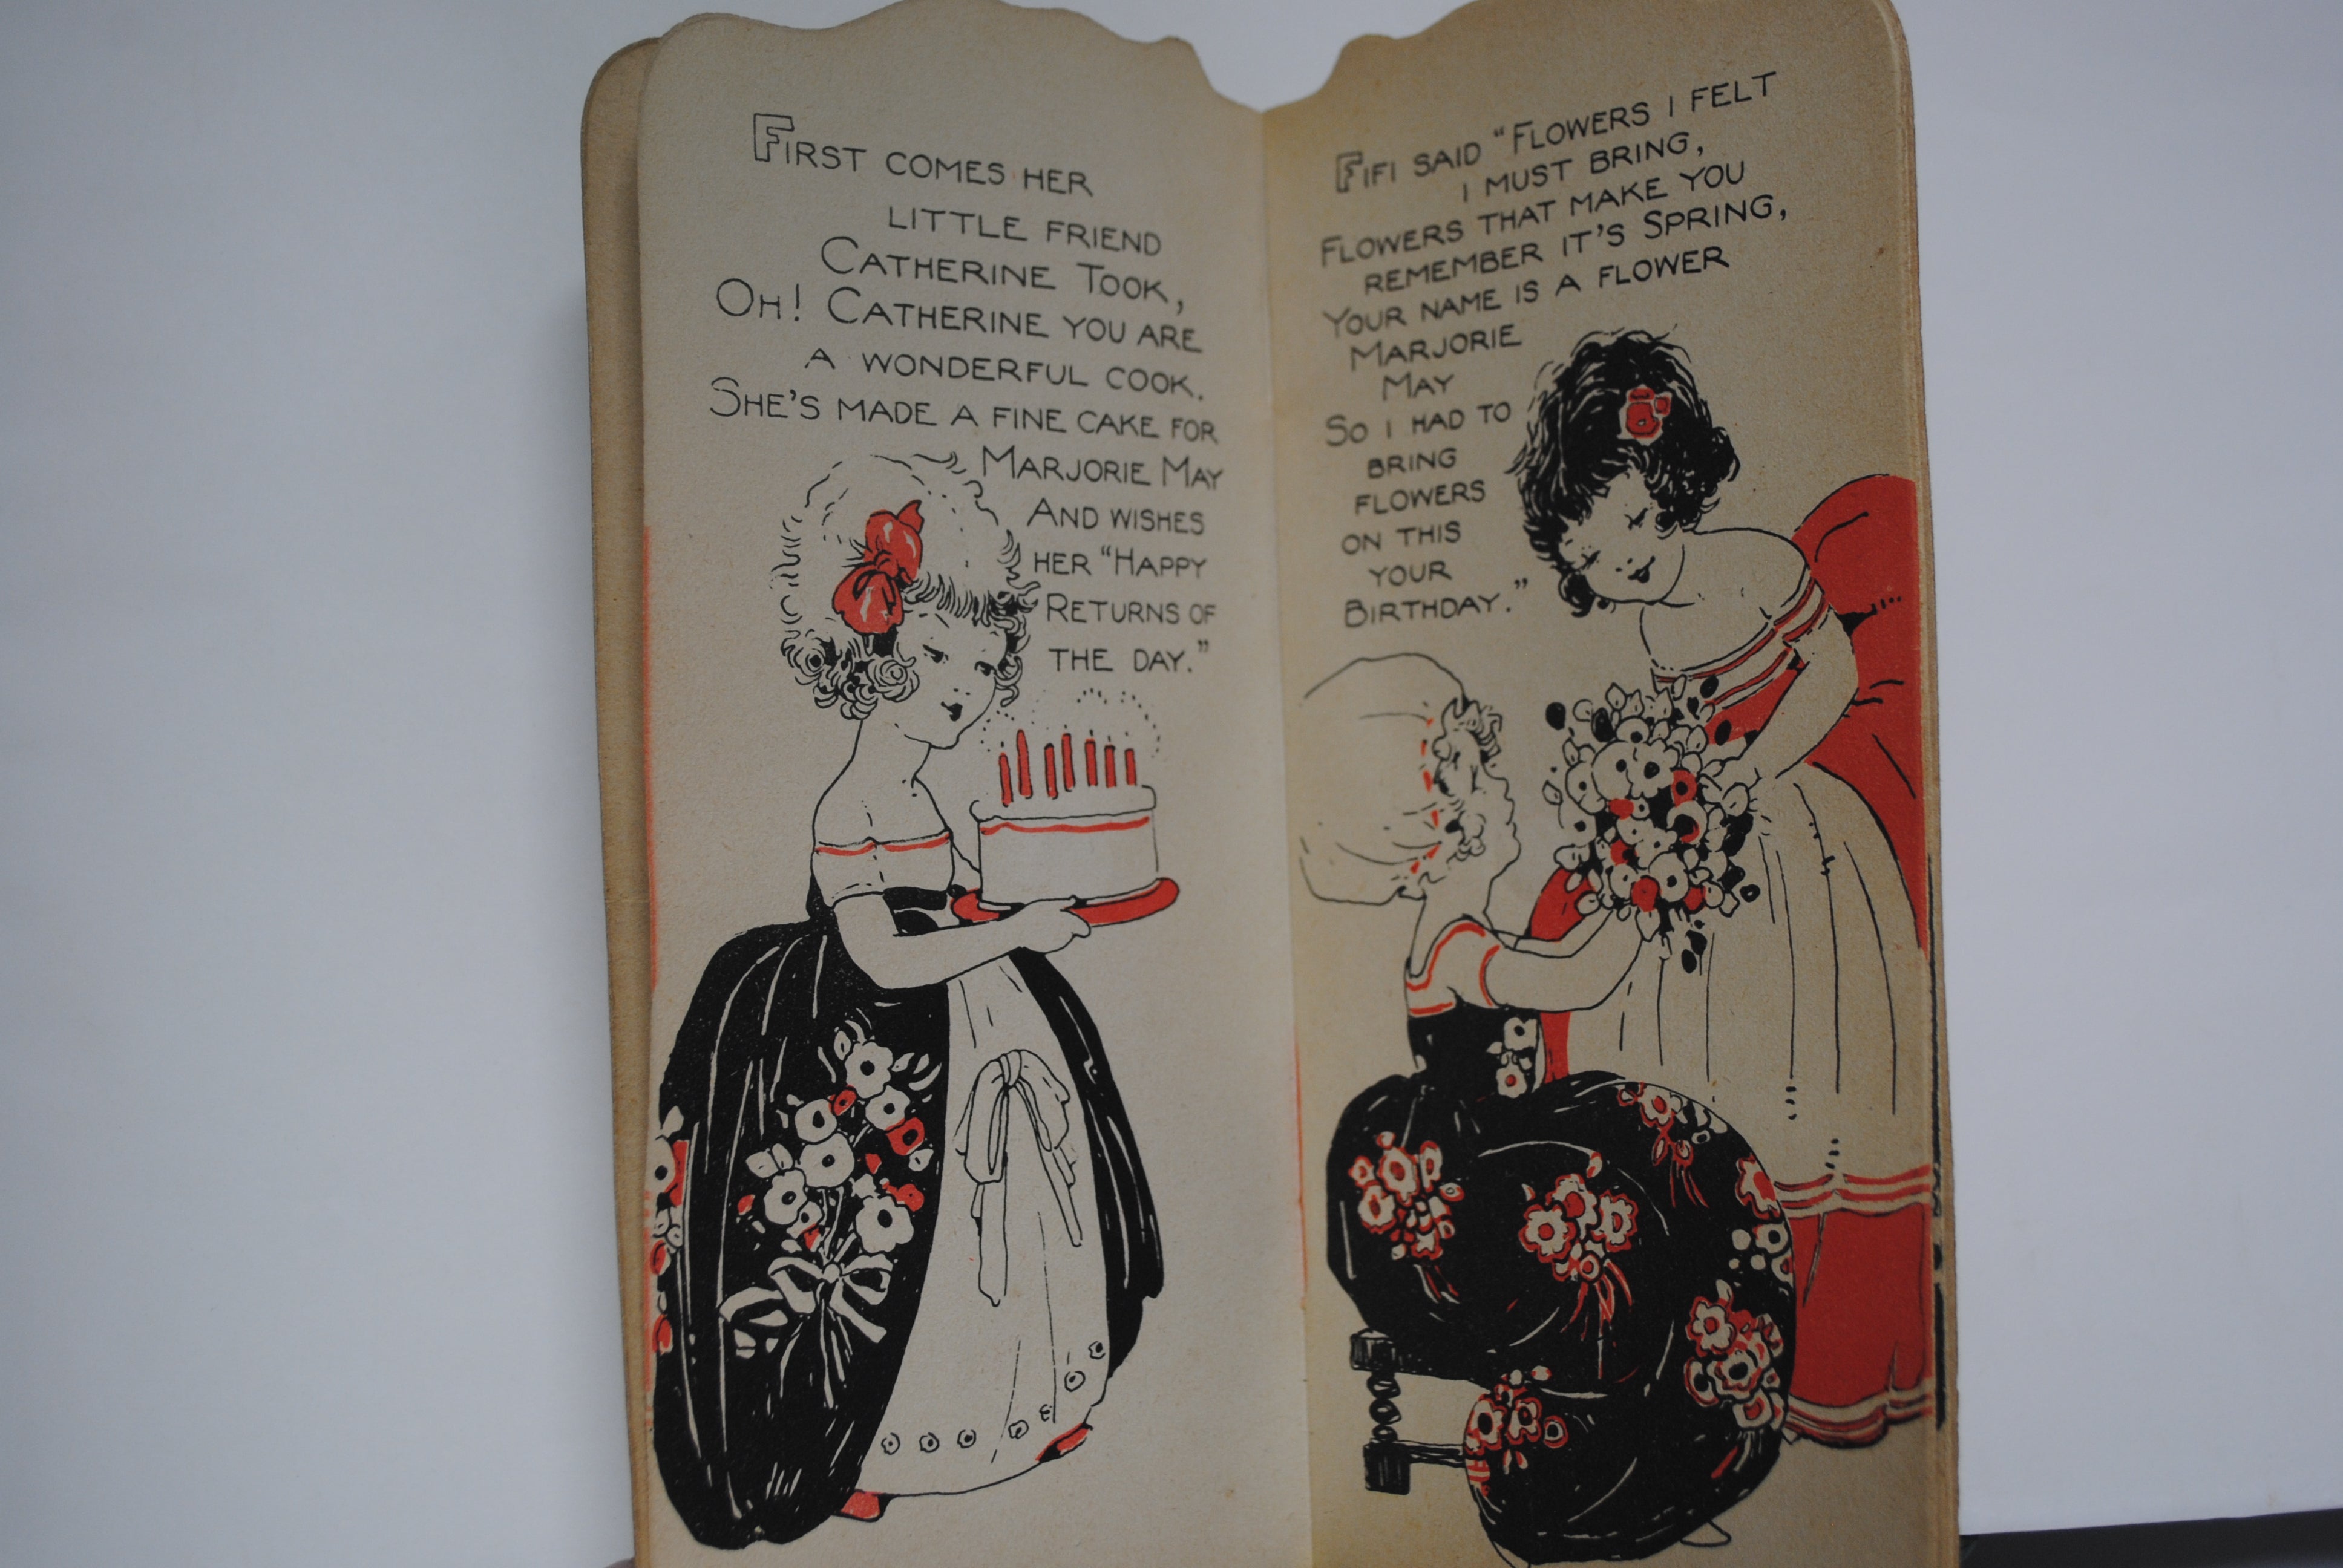 FIRST COMES HER
LITTLE FRIEND
CATHERINE TOOK,
OH! CATHERINE YOU ARE
A WONDERFUL COOK.
SHE'S MADE A FINE CAKE FOR
MARJORIE MAY
AND WISHES
HER "HAPPY
RETURNS OF
THE DAY."
FIFI SAID "FLOWERS I FELT
I MUST BRING,
FLOWERS THAT MAKE YOU
REMEMBER IT'S SPRING,
YOUR NAME IS A FLOWER
MARJORIE
MAY
SO I HAD TO
BRING
FLOWERS
ON THIS
YOUR
BIRTHDAY."